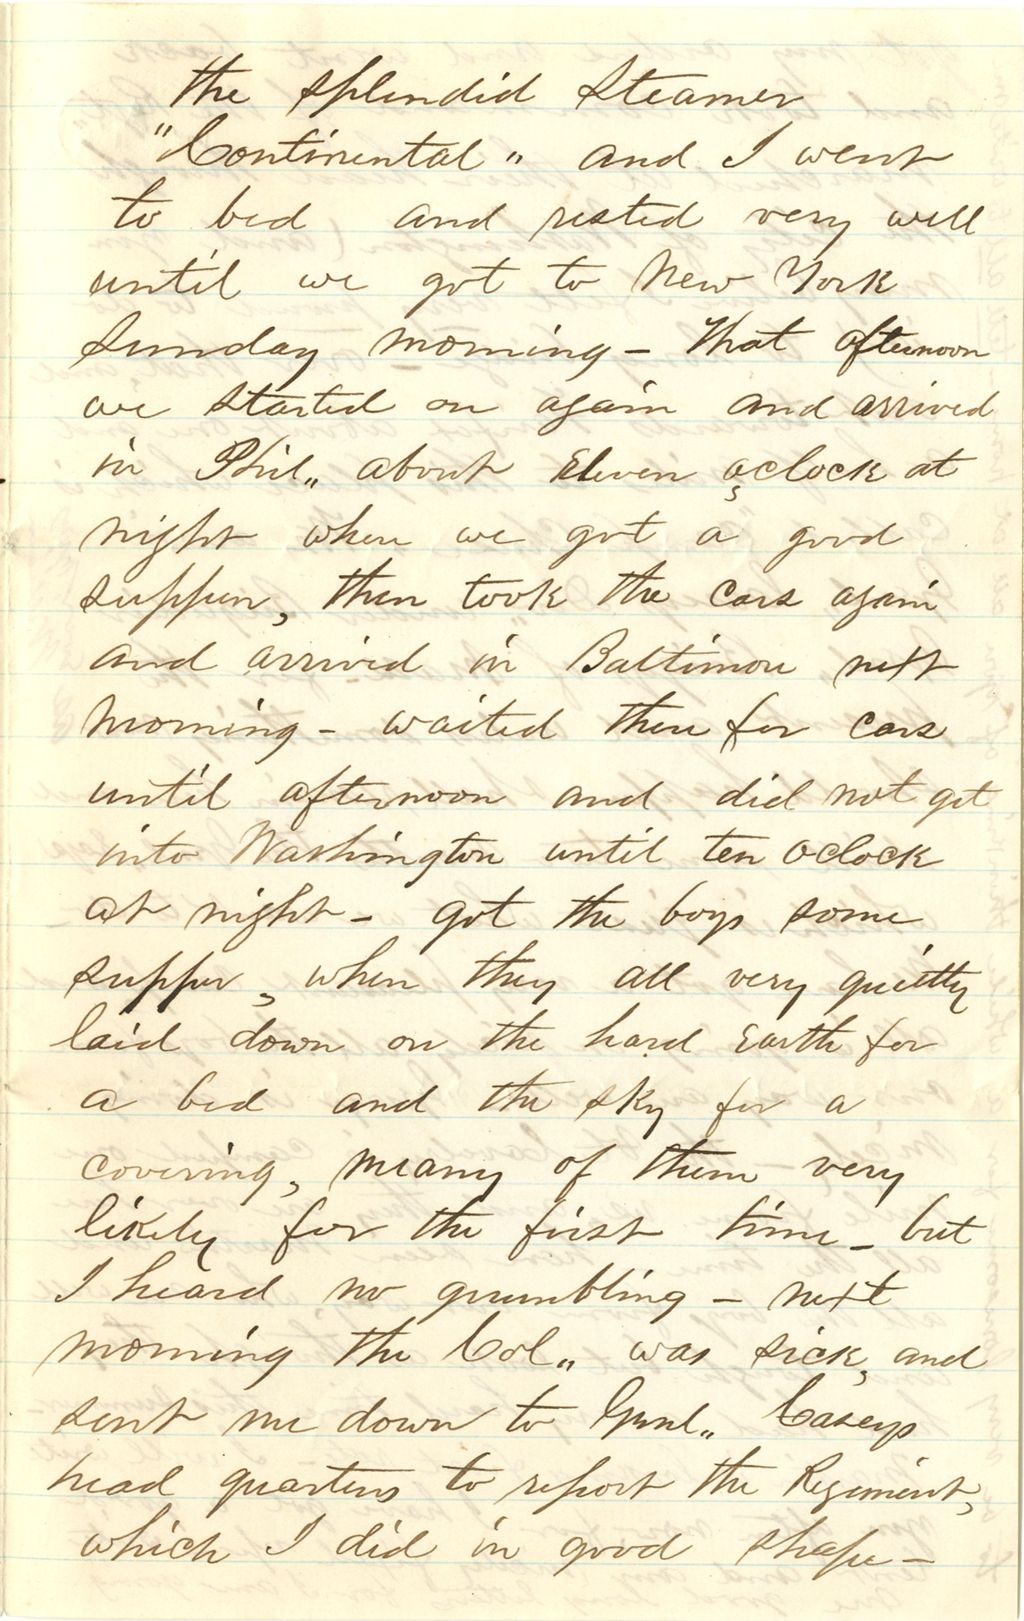 the splendid Steamer
"Continental" and I went
to bed and rested very well
until we got to New York
Sunday morning - That afternoon
we started on again and arrived
in Phil,, about Eleven oclock at
night when we got a good
supper, then took the cars again
and arrived in Baltimore next
morning - waited there for cars
until afternoon and did not get
into Washington until ten oclock
at night - got the boys some
supper, when they all very quietly
laid down on the hard Earth for
a bed and the sky for a
covering, many of them very
likely for the first time - but
I heard no grumbling - next
morning the Col,, was sick, and
sent me down to Genl,, Caseys
head quarters to report the Regiment,
which I did in good shape -